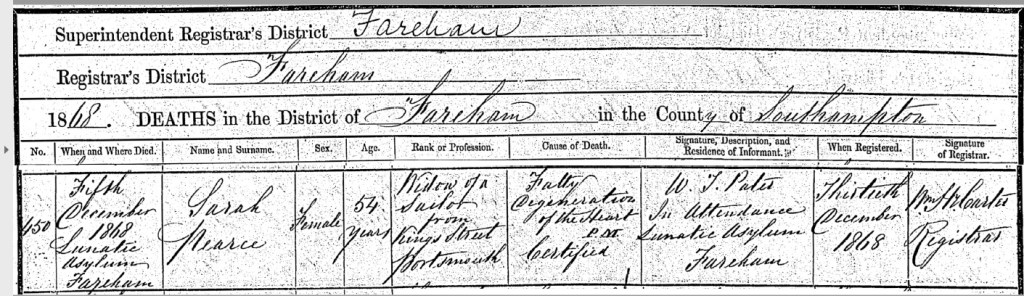 Superintendent Registrar's District Fareham
Registrar's District Fareham
1868. DEATHS in the District of Fareham in the County of Southampton
No. When and Where Died. Name and Surname. Sex. Age. Rank or Profession. Cause of Death. Signature, Description, and Residence of Informant. When Registered. Signature of Registrar.
450
Fifth
December
1868
Lunatic
Asylum
Fareham
Sarah
Pearce
Female
54
years
Widow of a
Sailor
from
Kings Street
Portsmouth
Fatty
Degeneration
of the Heart
Certified
W. J.
In Attendance
Lunatic Asylum
Fareham
Thirtieth
December
1868
Carter
Registrar